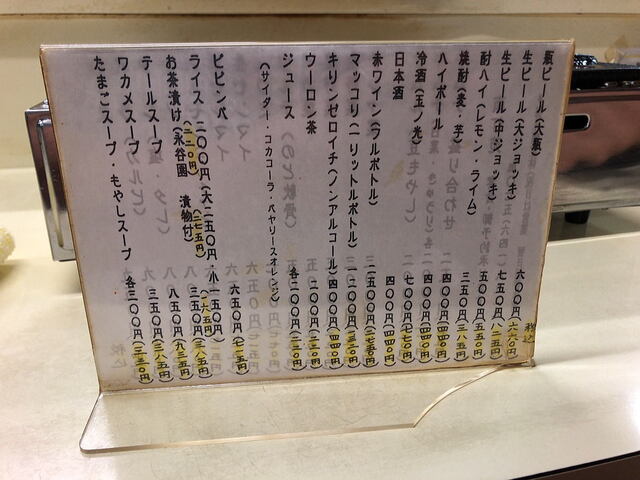 瓶ビール（大瓶） 六〇〇円（六六〇円） 税込
生ビール（大ジョッキ） 七五〇円（八二五円）
生ビール（中ジョッキ） 五〇〇円（五五〇円）
酎ハイ（レモン・ライム） 三五〇円（三八五円）
焼酎（麦・芋） 四〇〇円（四四〇円）
ハイボール 四〇〇円（四四〇円）
冷酒（玉ノ光） 七〇〇円（七七〇円）
日本酒 四〇〇円（四四〇円）
赤ワイン（フルボトル） 二五〇〇円（二七五〇円）
マッコリ（一リットルボトル） 一二〇〇円（一三二〇円）
キリンゼロイチ（ノンアルコール） 四〇〇円（四四〇円）
ウーロン茶 二〇〇円（二二〇円）
ジュース 各二〇〇円（二二〇円）
（サイダー・コカコーラ・バヤリースオレンジ）
ビビンバ 六五〇円（七一五円）
ライス 二〇〇円（大二五〇円・小一五〇円）
（二二〇円） （二七五円） （一六五円）
お茶漬け（永谷園 漬物付） 三五〇円（三八五円）
テールスープ 八五〇円（九三五円）
ワカメスープ 三五〇円（三八五円）
たまごスープ・もやしスープ 各三〇〇円（三三〇円）